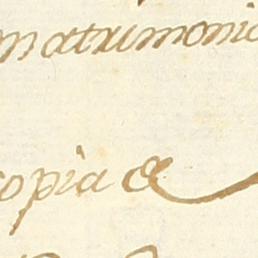 matrimonio
copia &